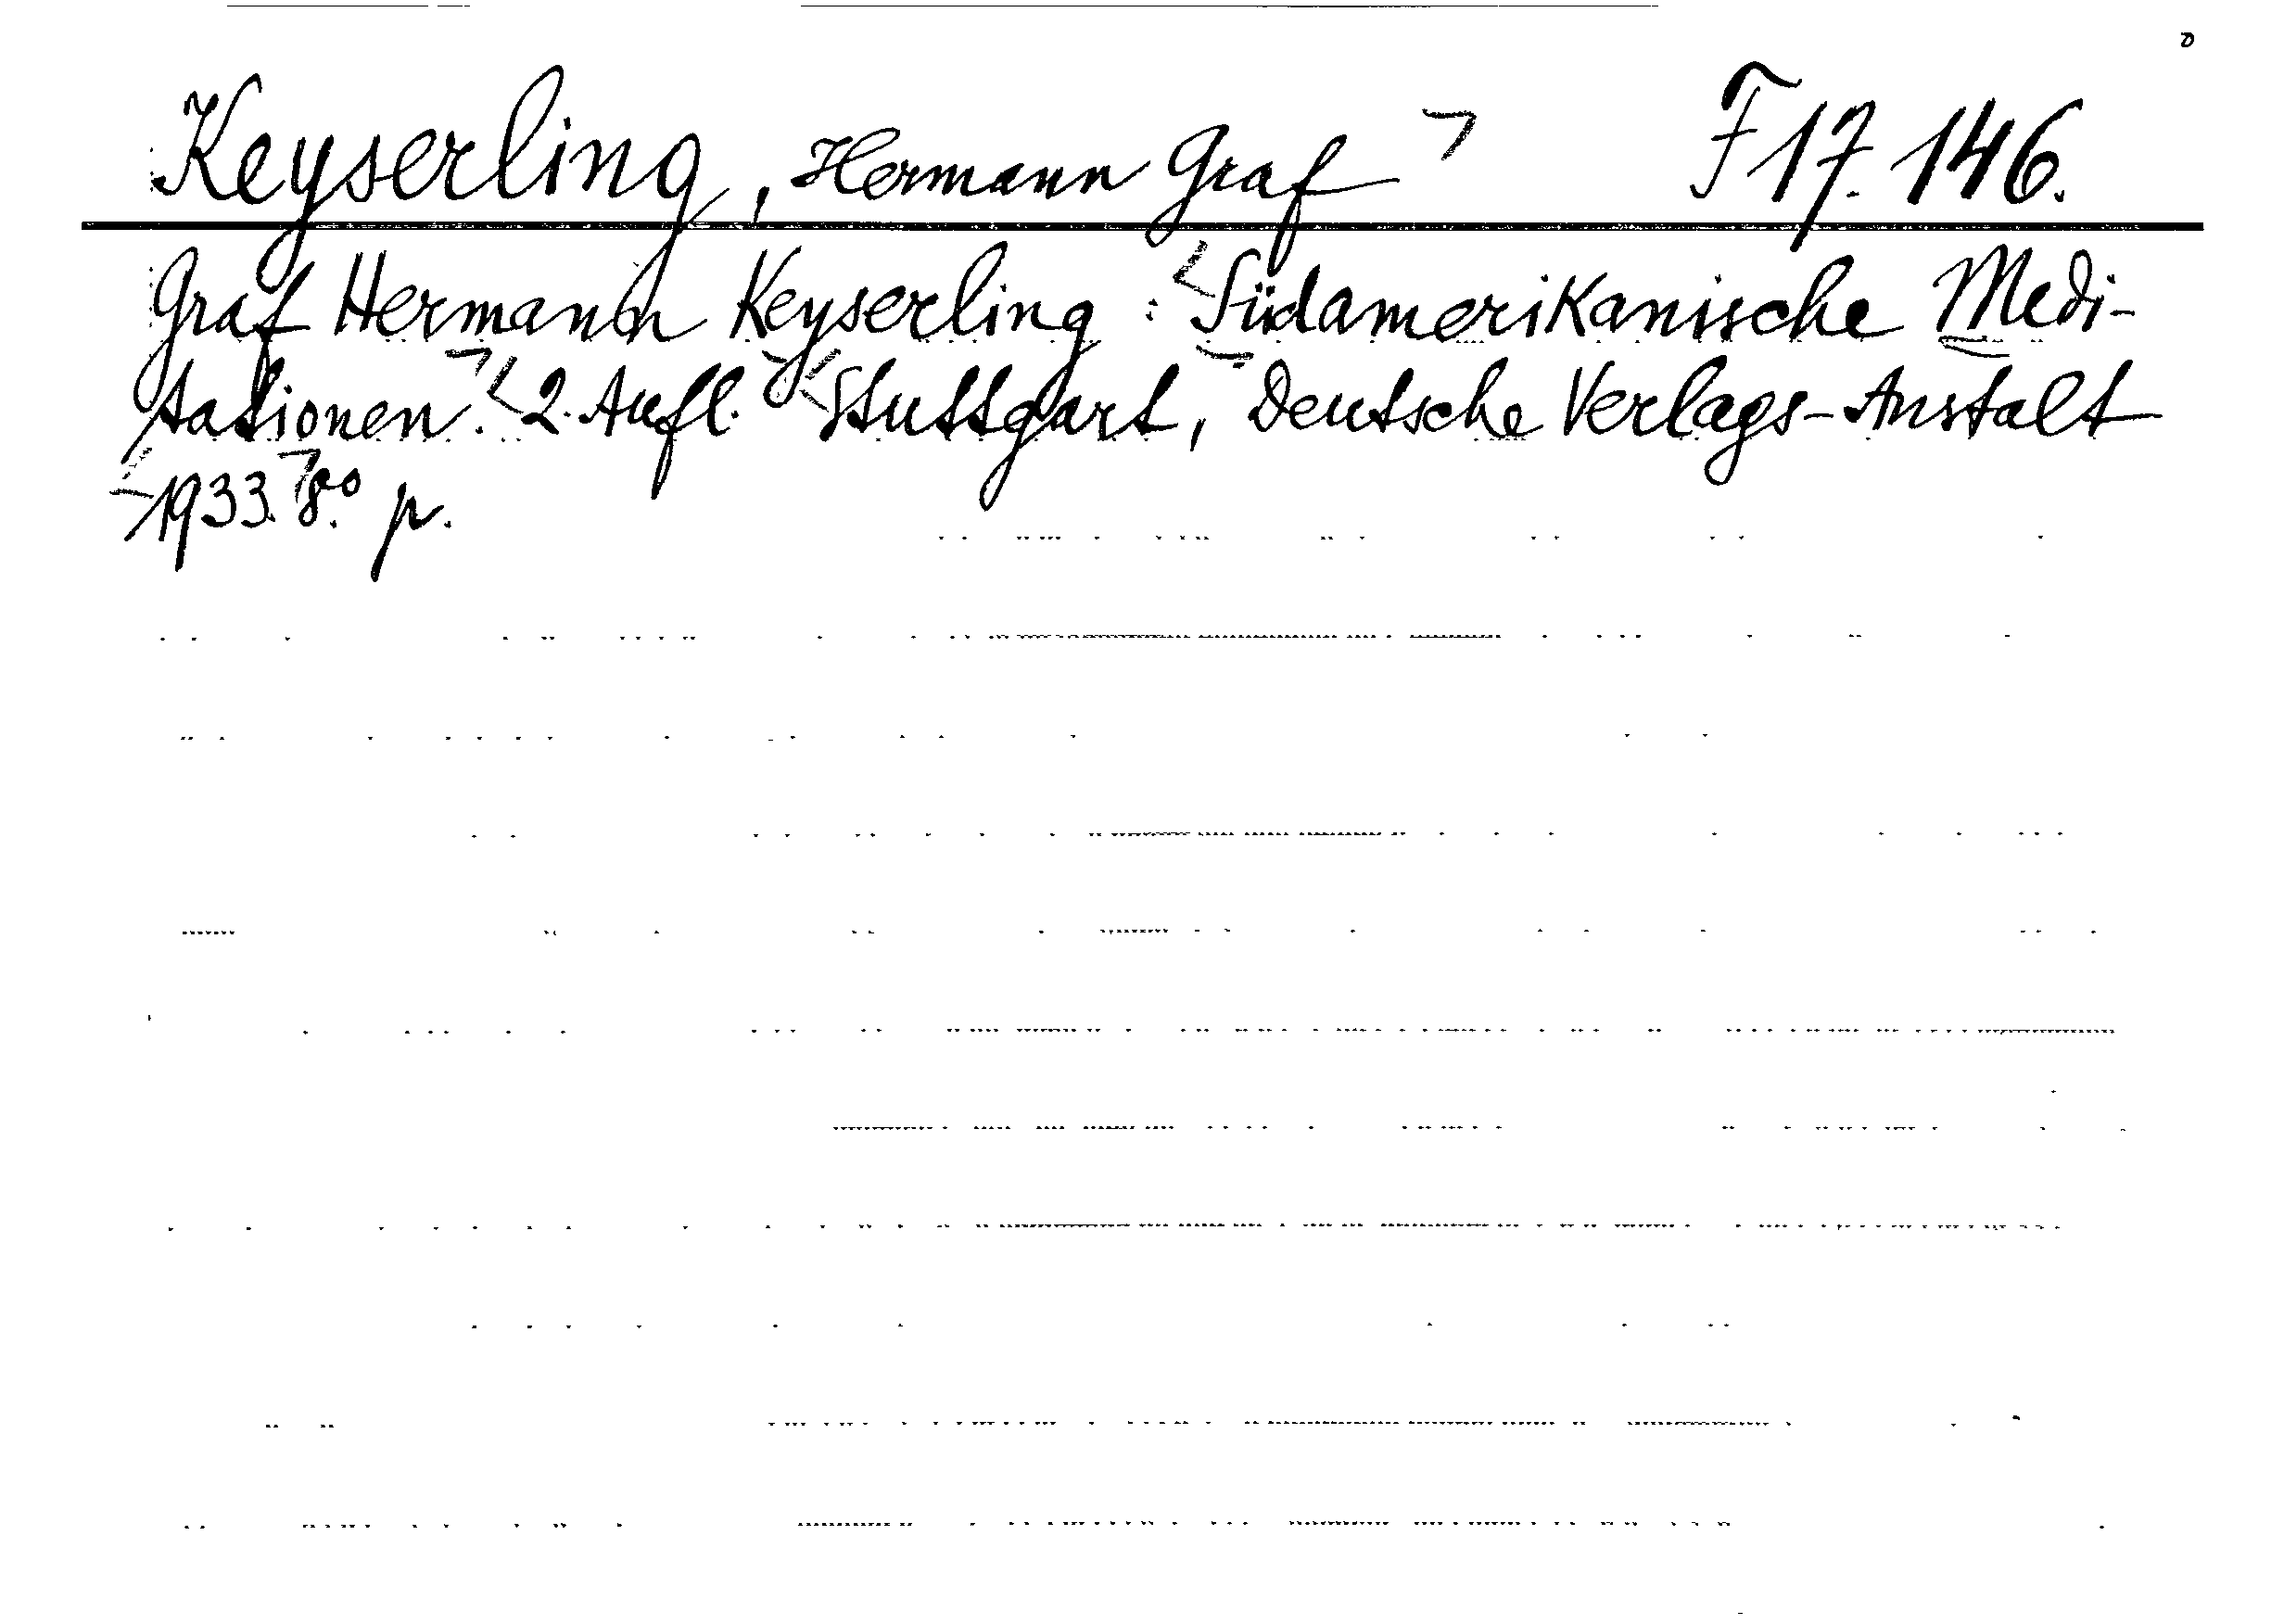 Keyserling, Hermann Graf F 17.146.
Graf Hermann Keyserling: Südamerikanische Medi-
tationen. 2. Aufl. Stuttgart, Deutsche Verlags-Anstalt
1933. 8.° p.